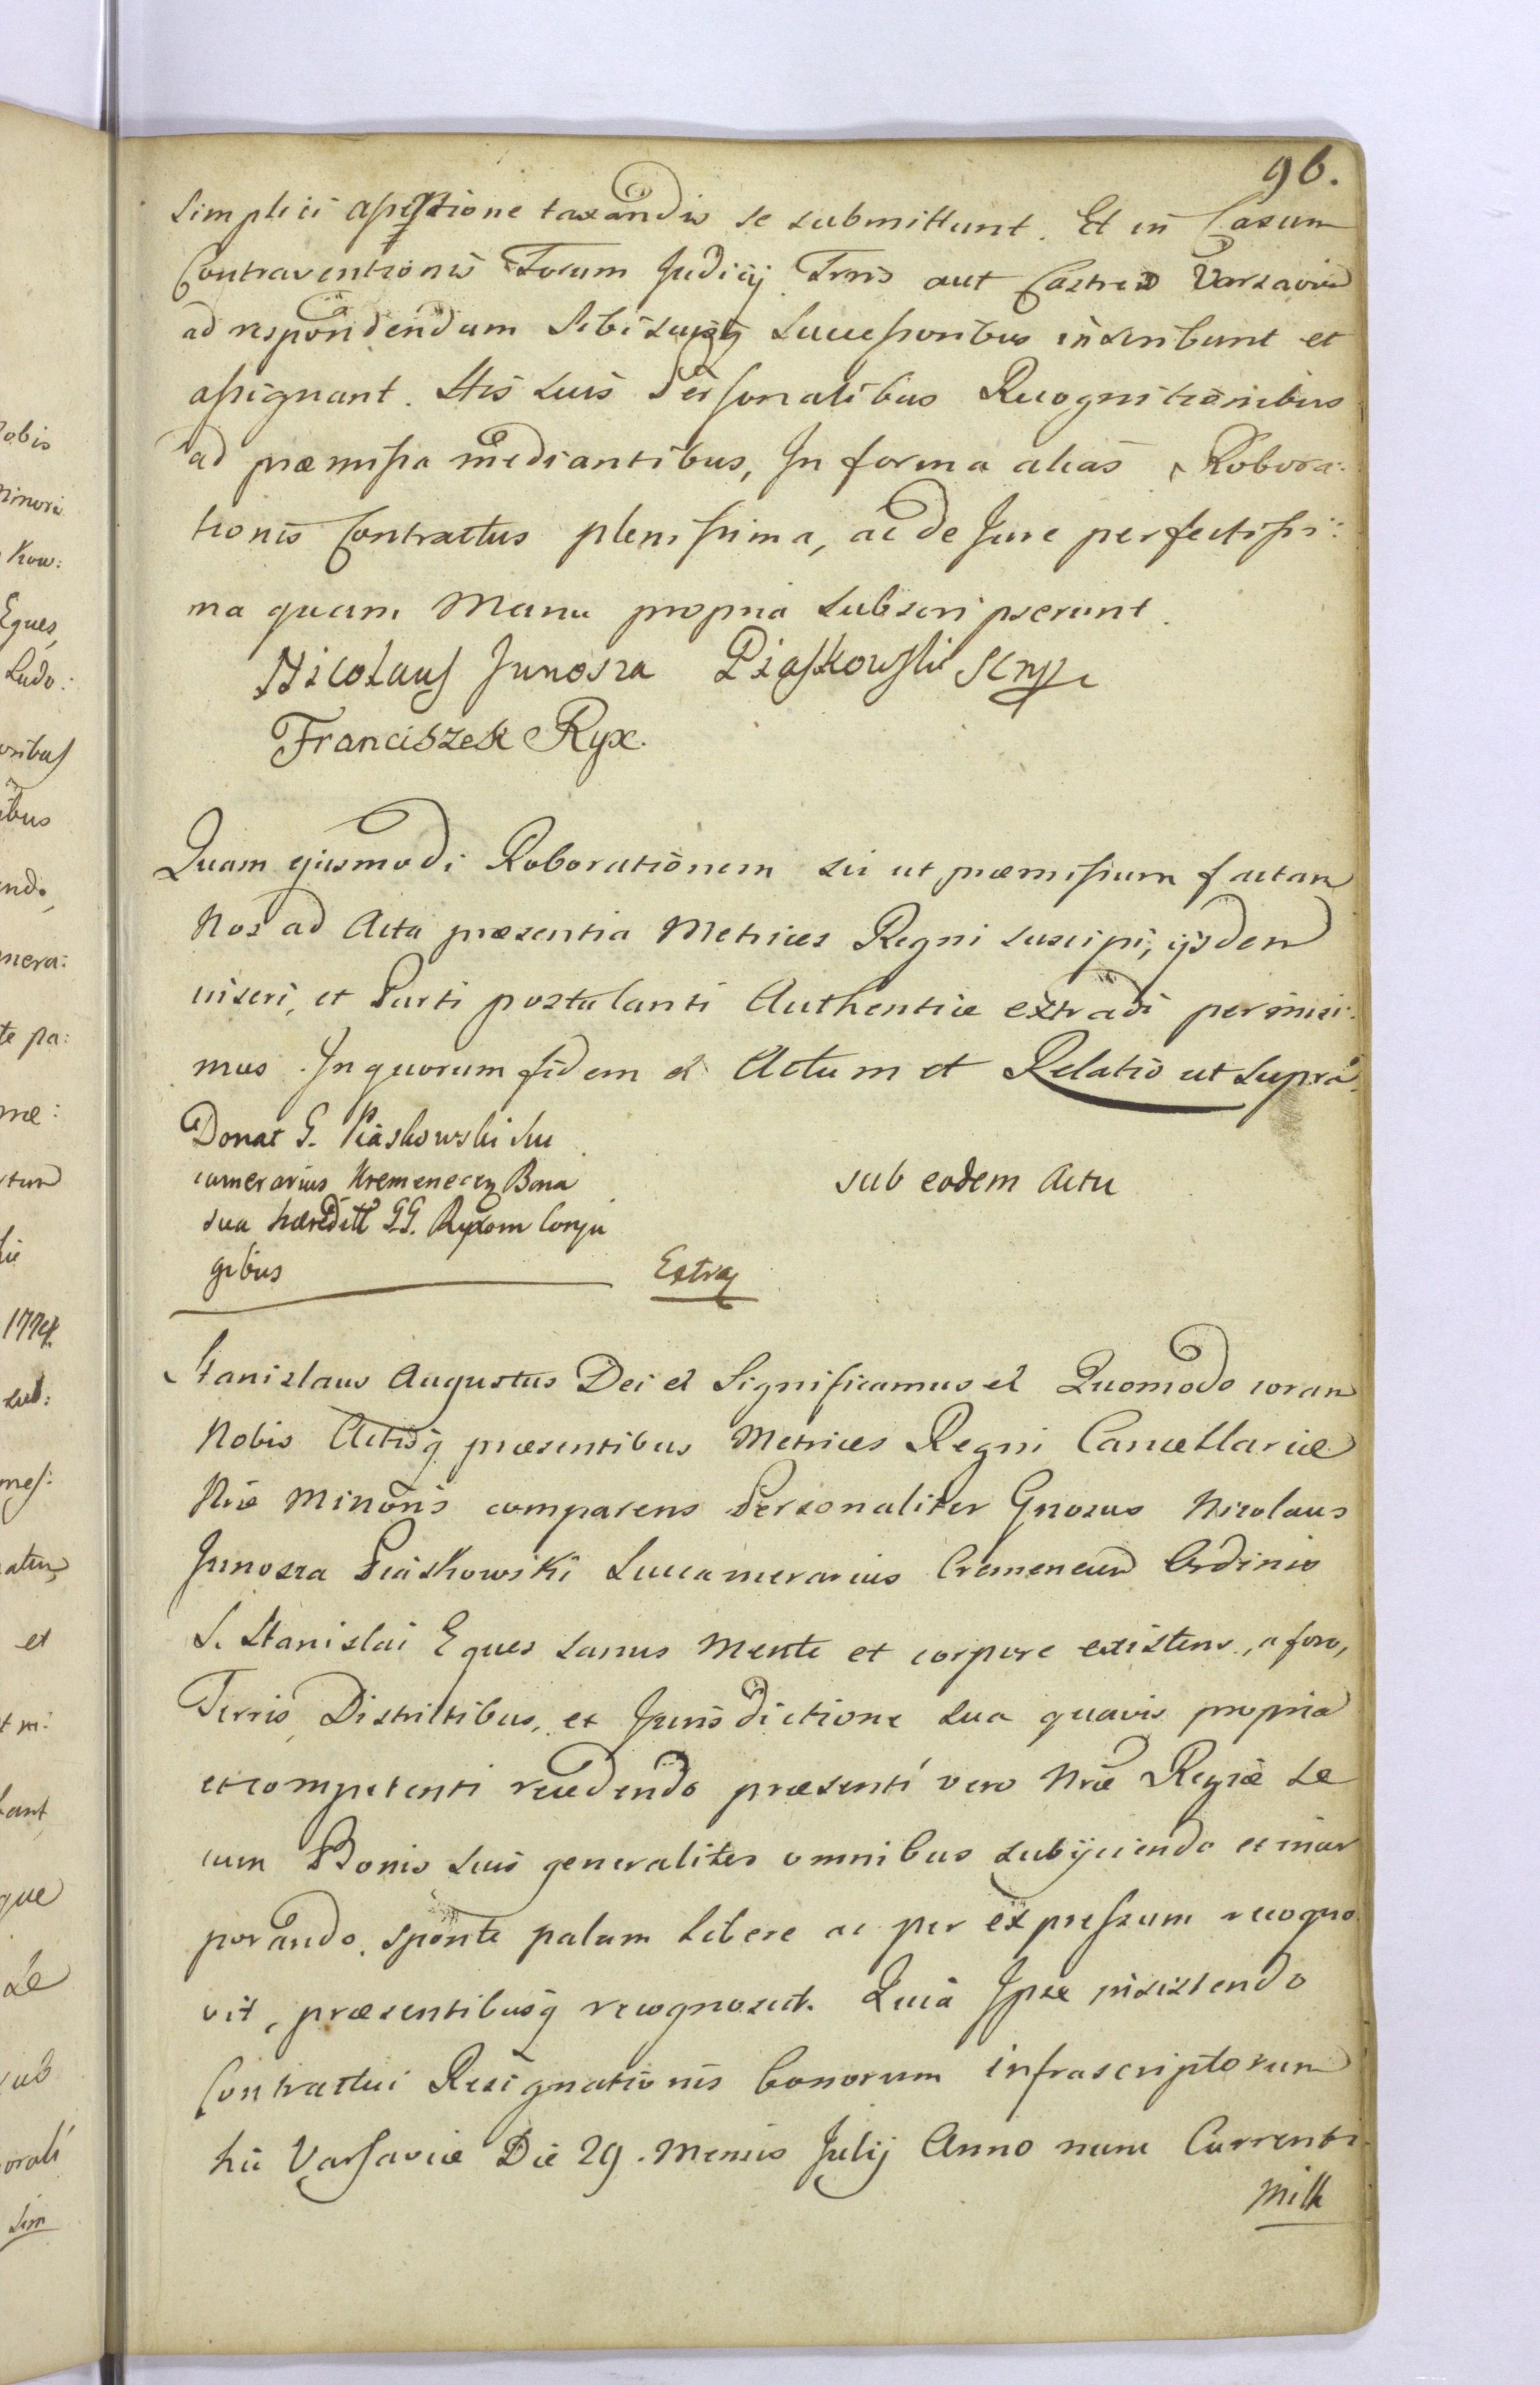 96.
simplici assertione taxandis se submittunt. Et in Casum
Contraventionis Forum Judicij Trris aut Castren Varsavien
ad respondendum Sibi suisq Successoribus inscribunt et
assignant. His suis Personalibus Recognitionibus
ad præmissa mediantibus, In forma alias Robora:
tionis Contractus plenissima, ac de Jure perfectissi:
ma quam Manu propria subscripserunt.
Nicolaus Junosza Piaskowski
Franciszek Ryx.
Quam ejusmodi Roborationem sic ut præmissum factam
Nos ad Acta præsentia Metrices Regni suscipi, ijsdem
inseri, et Parti postulanti Authentice extradi permisi:
mus. In quorum fidem et Actum et Relatio ut supra.
Donat G. Piaskowski Suc
camerarius Kremenecen Bona
sua hæreditt GG. Ryxom Conju
gibus
sub eodem Actu
Extrag
Stanislaus Augustus Dei et Significamus et Quomodo coram
Nobis Actisq præsentibus Metrices Regni Cancellariæ
Nræ Minoris comparens Personaliter Gnosus Nicolaus
Junosza Piaskowski Succamerarius Cremenecen Ordinis
S. Stanislai Eques sanus Mente et corpore existens, a foro,
Terris, Districtibus, et Jurisdictione sua quavis propria
et competenti recedendo præsenti vero Nræ Regiæ se
cum Bonis suis generaliter omnibus subijciendo et incor
porando, sponte palam libere ac per expressum recogno
vit, præsentibusq recognoscit. Quia Ipse insistendo
Contractui Resignationis bonorum infrascriptorum
hic Varsaviæ Die 29. Mensis Julij Anno nunc Currenti
Mill